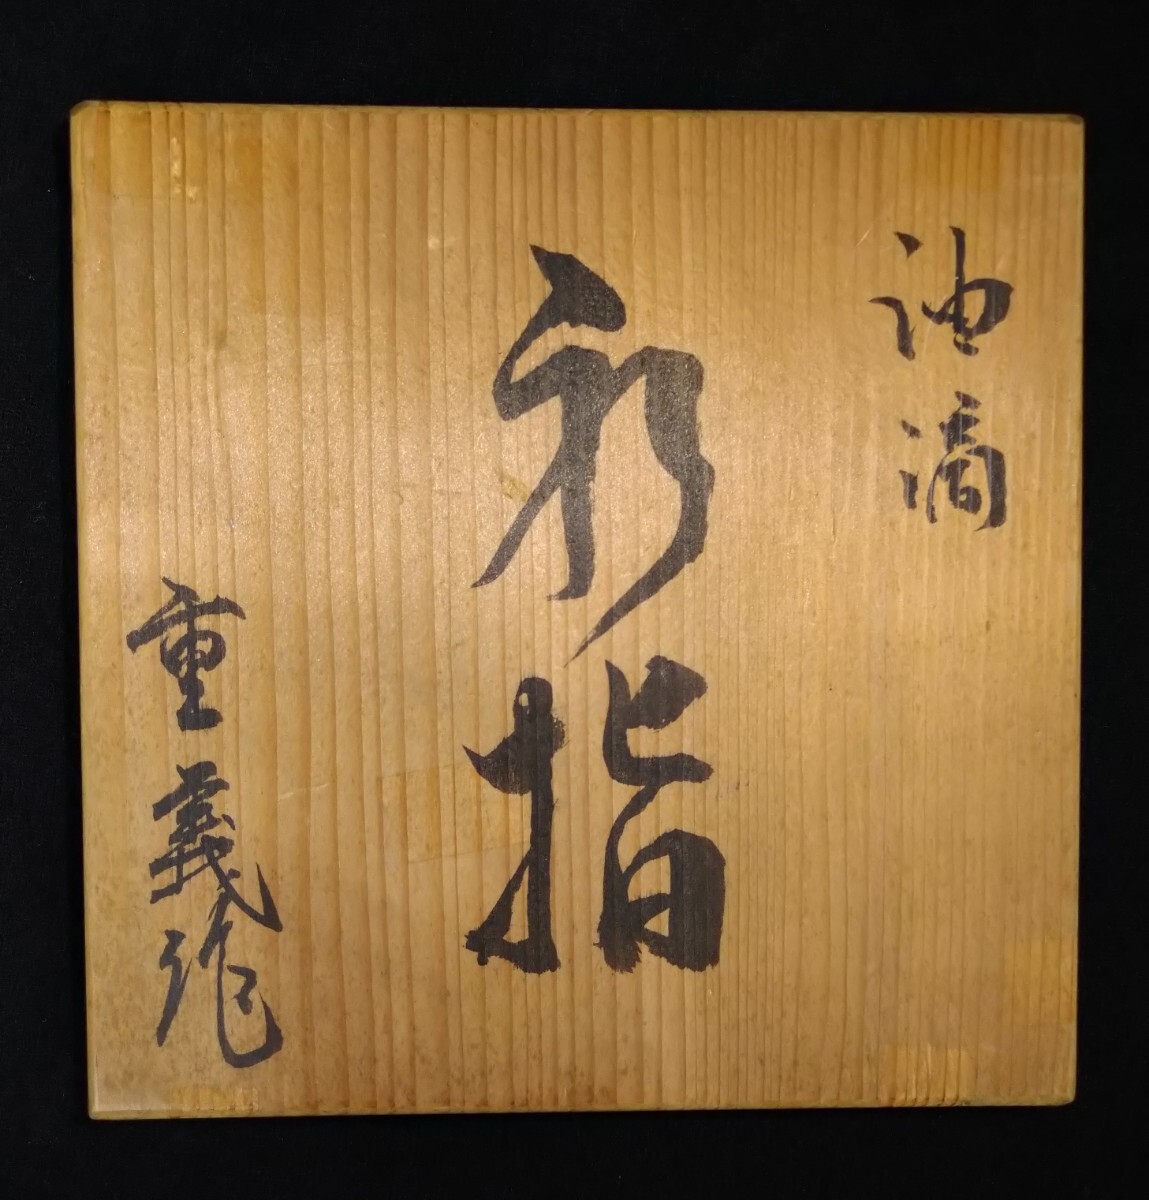 油滴
水指
重義作